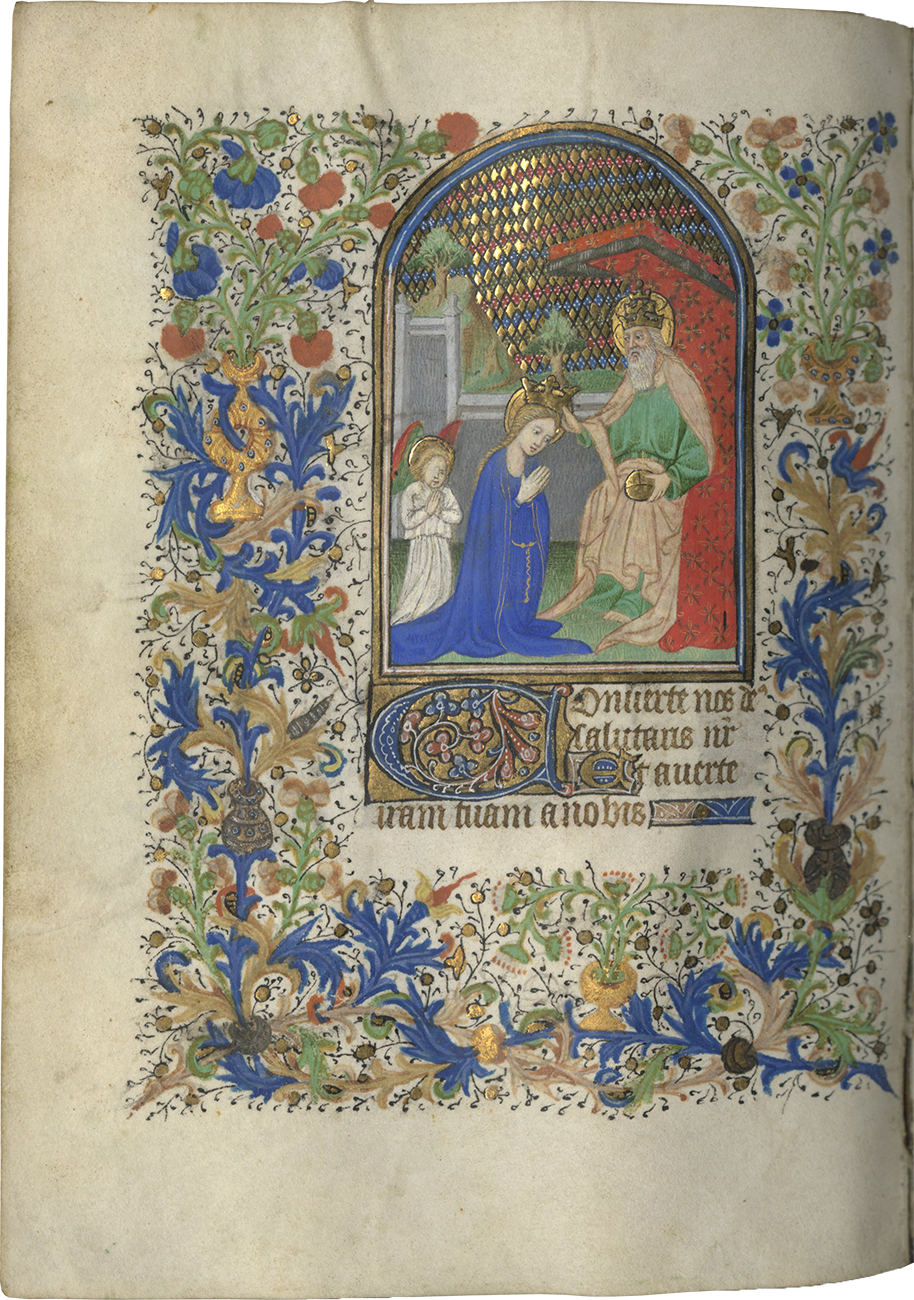 Onuerte nos de⁹
Salutaris nr̄
Et auerte
iram tuam a nobis